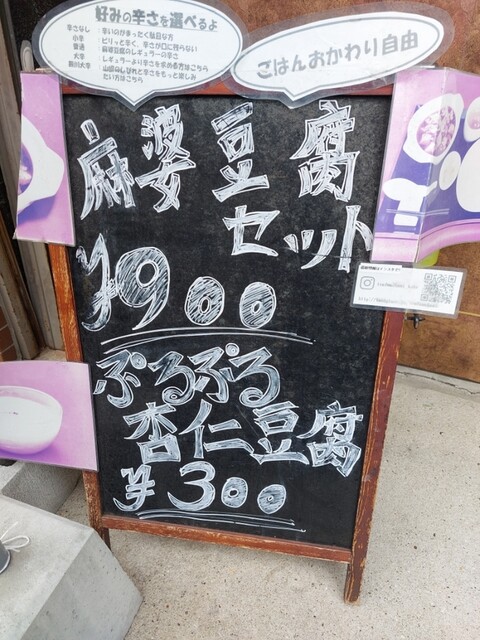 好みの辛さを選べるよ
辛さなし:辛いのがまったく駄目な方
小辛:ピリッと辛く、辛さが口に残らない
普通:麻婆豆腐のレギュラーの辛さ
大辛:レギュラーより辛さを求める方はこちら
ごはんおかわり自由
麻婆豆腐
セット
¥900
ぷるぷる
杏仁豆腐
¥300